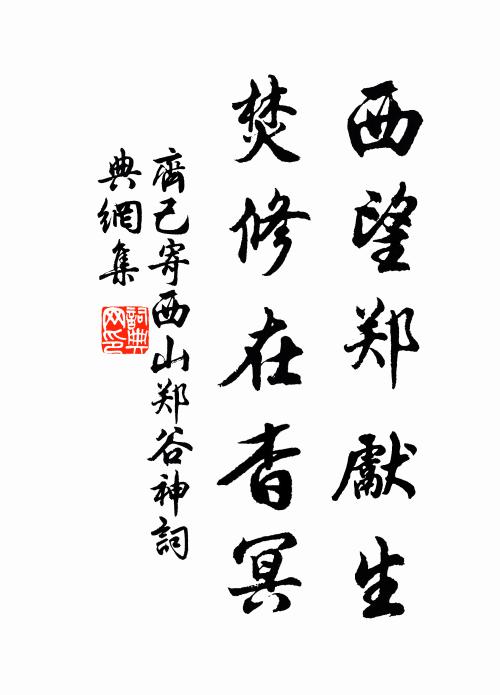 西望郑獻生
焚修在杳冥
齊己寄西山郑谷神詞
典網集
詞典网印